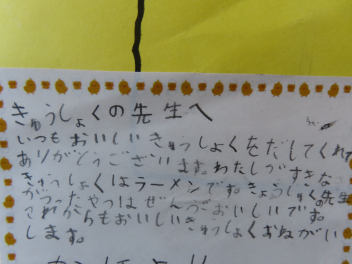 きゅうしょくの先生へ
いつもおいしいきゅうしょくをだしてくれて
ありがとうございます。わたしがすきな
きゅうしょくはラーメンです。きゅうしょくの先生
がつくったやつはぜんぶおいしいです。
これからもおいしいきゅうしょくおねがい
します。